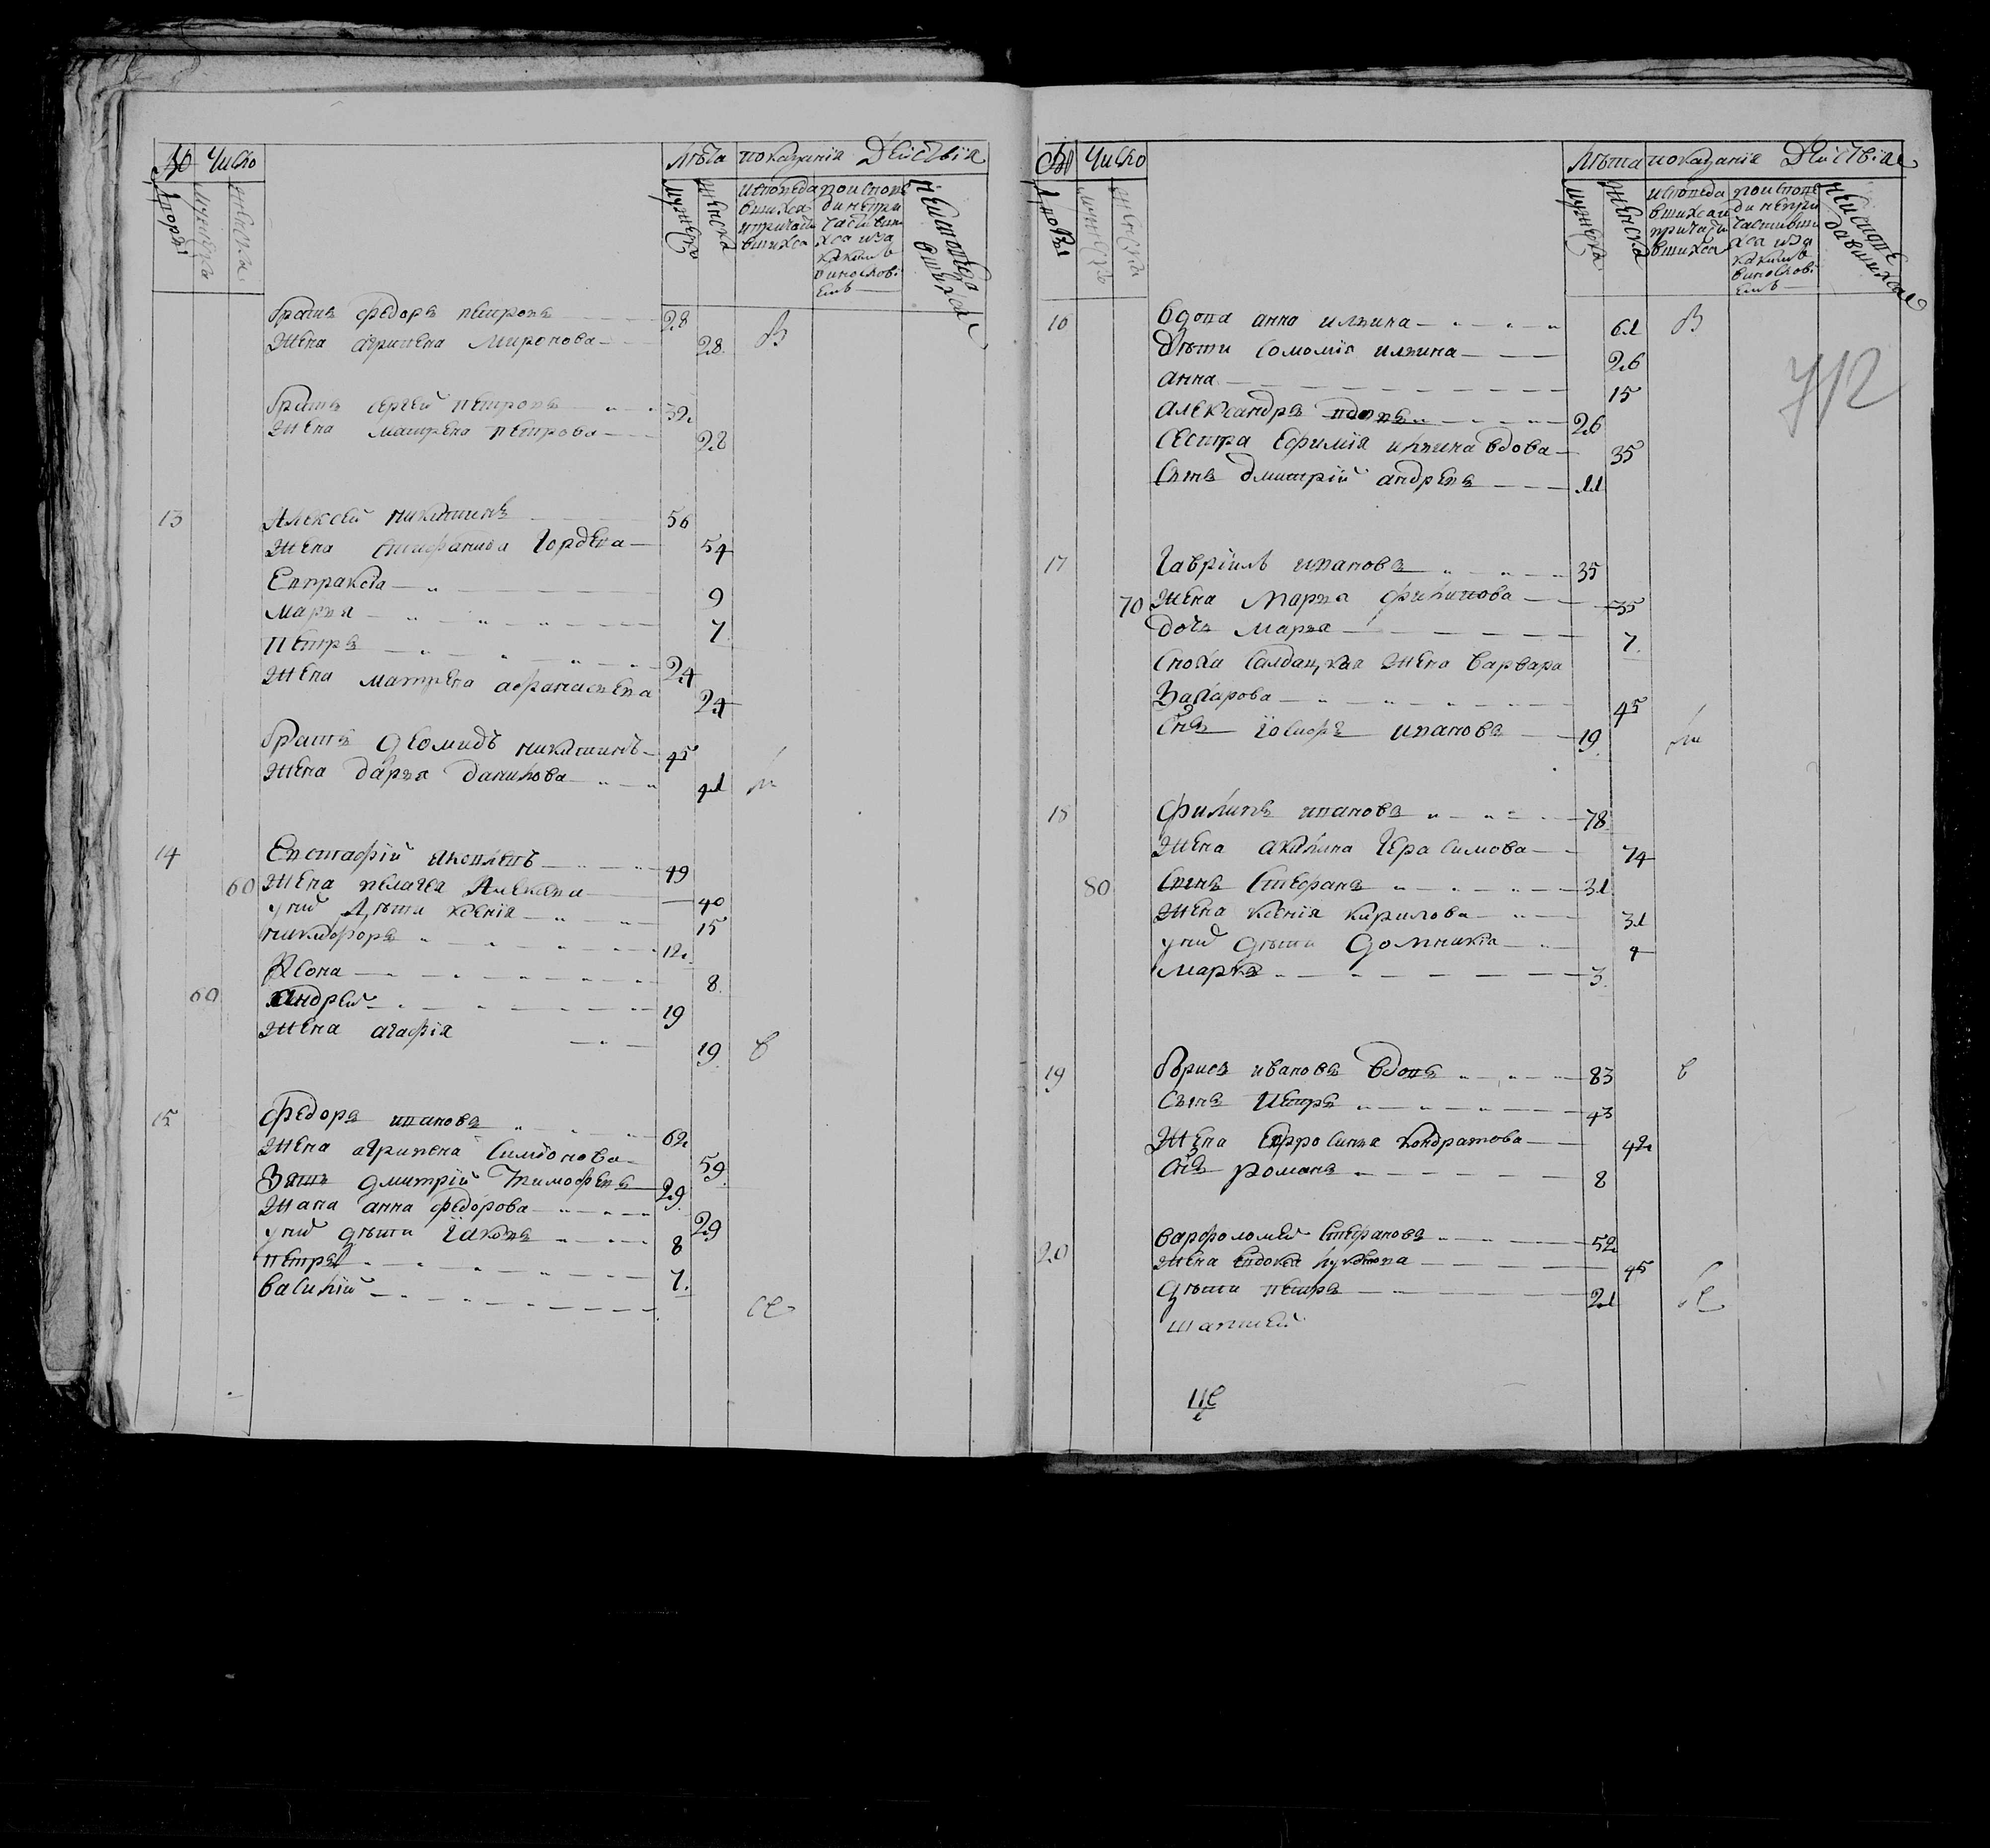 Число
Лѣта показания Действія
Дворы
мужеска
женска
мужеска
женска
исповеда
вшихся
и причасти
вшихся
по испове
ди непри
частивши
хся и за
какимъ
винослові
емъ
неисповеда
вшихся
братъ федоръ петровъ 28
жена агрипена миронова 28 В
братъ сергей петровъ 32
жена матрена петрова 28
13 Алексей никитинъ 56
жена стифанида гордева 54
Евпраксіа 9
марья 7
петръ 24
жена матрена афанасьева 24
братъ диомидъ никитинъ 45
жена дарья данилова 41
14 Евстафій 49
60 жена пелагея Алексева 40
у ниӣ дѣти ксенія 15
никифоръ 12
8
60 андреӣ 19
жена агафія 19 в
15 федоръ ивановъ 62
жена агрипена симіонова 59
Зять дмитрій тимофевъ 29
жана анна федорова 29
у ниӣ дѣти іаковъ 8
петръ 7
василій
Число
Лѣта показания Действіе
Дворы
мужеска
женска
мужеска
женска
исповеда
вшихся и
причасти
вшихся
по испове
ди непри
частивши
хся и за
какимъ
винослові
емъ
неисповедавшихся
712
16 вдова анна ильина 61 В
дѣти соломія ильина 26
анна 15
александръ вдовъ 26
сестра ефимія ильина вдова 35
сынъ дмитрій андревъ 11
17 гавріилъ ивановъ 35
70 жена марья филипова 35
дочь марья 7
сноха салдацкая жена варвара
Захарова 45
снъ іосифъ ивановъ 19
18 филипъ ивановъ 78
жена акилина герасимова 74
80 сынъ стефанъ 31
жена ксенія кирилова 31
у ниӣ дѣти домникіа 4
маркъ 3
19 борисъ ивановъ вдовъ 83 в
сынъ петръ 43
жена ефросинья кондратова 42
снъ романъ 8
20 варфоломеӣ стефановъ 52
жена евдокея 45
дѣти петръ 21